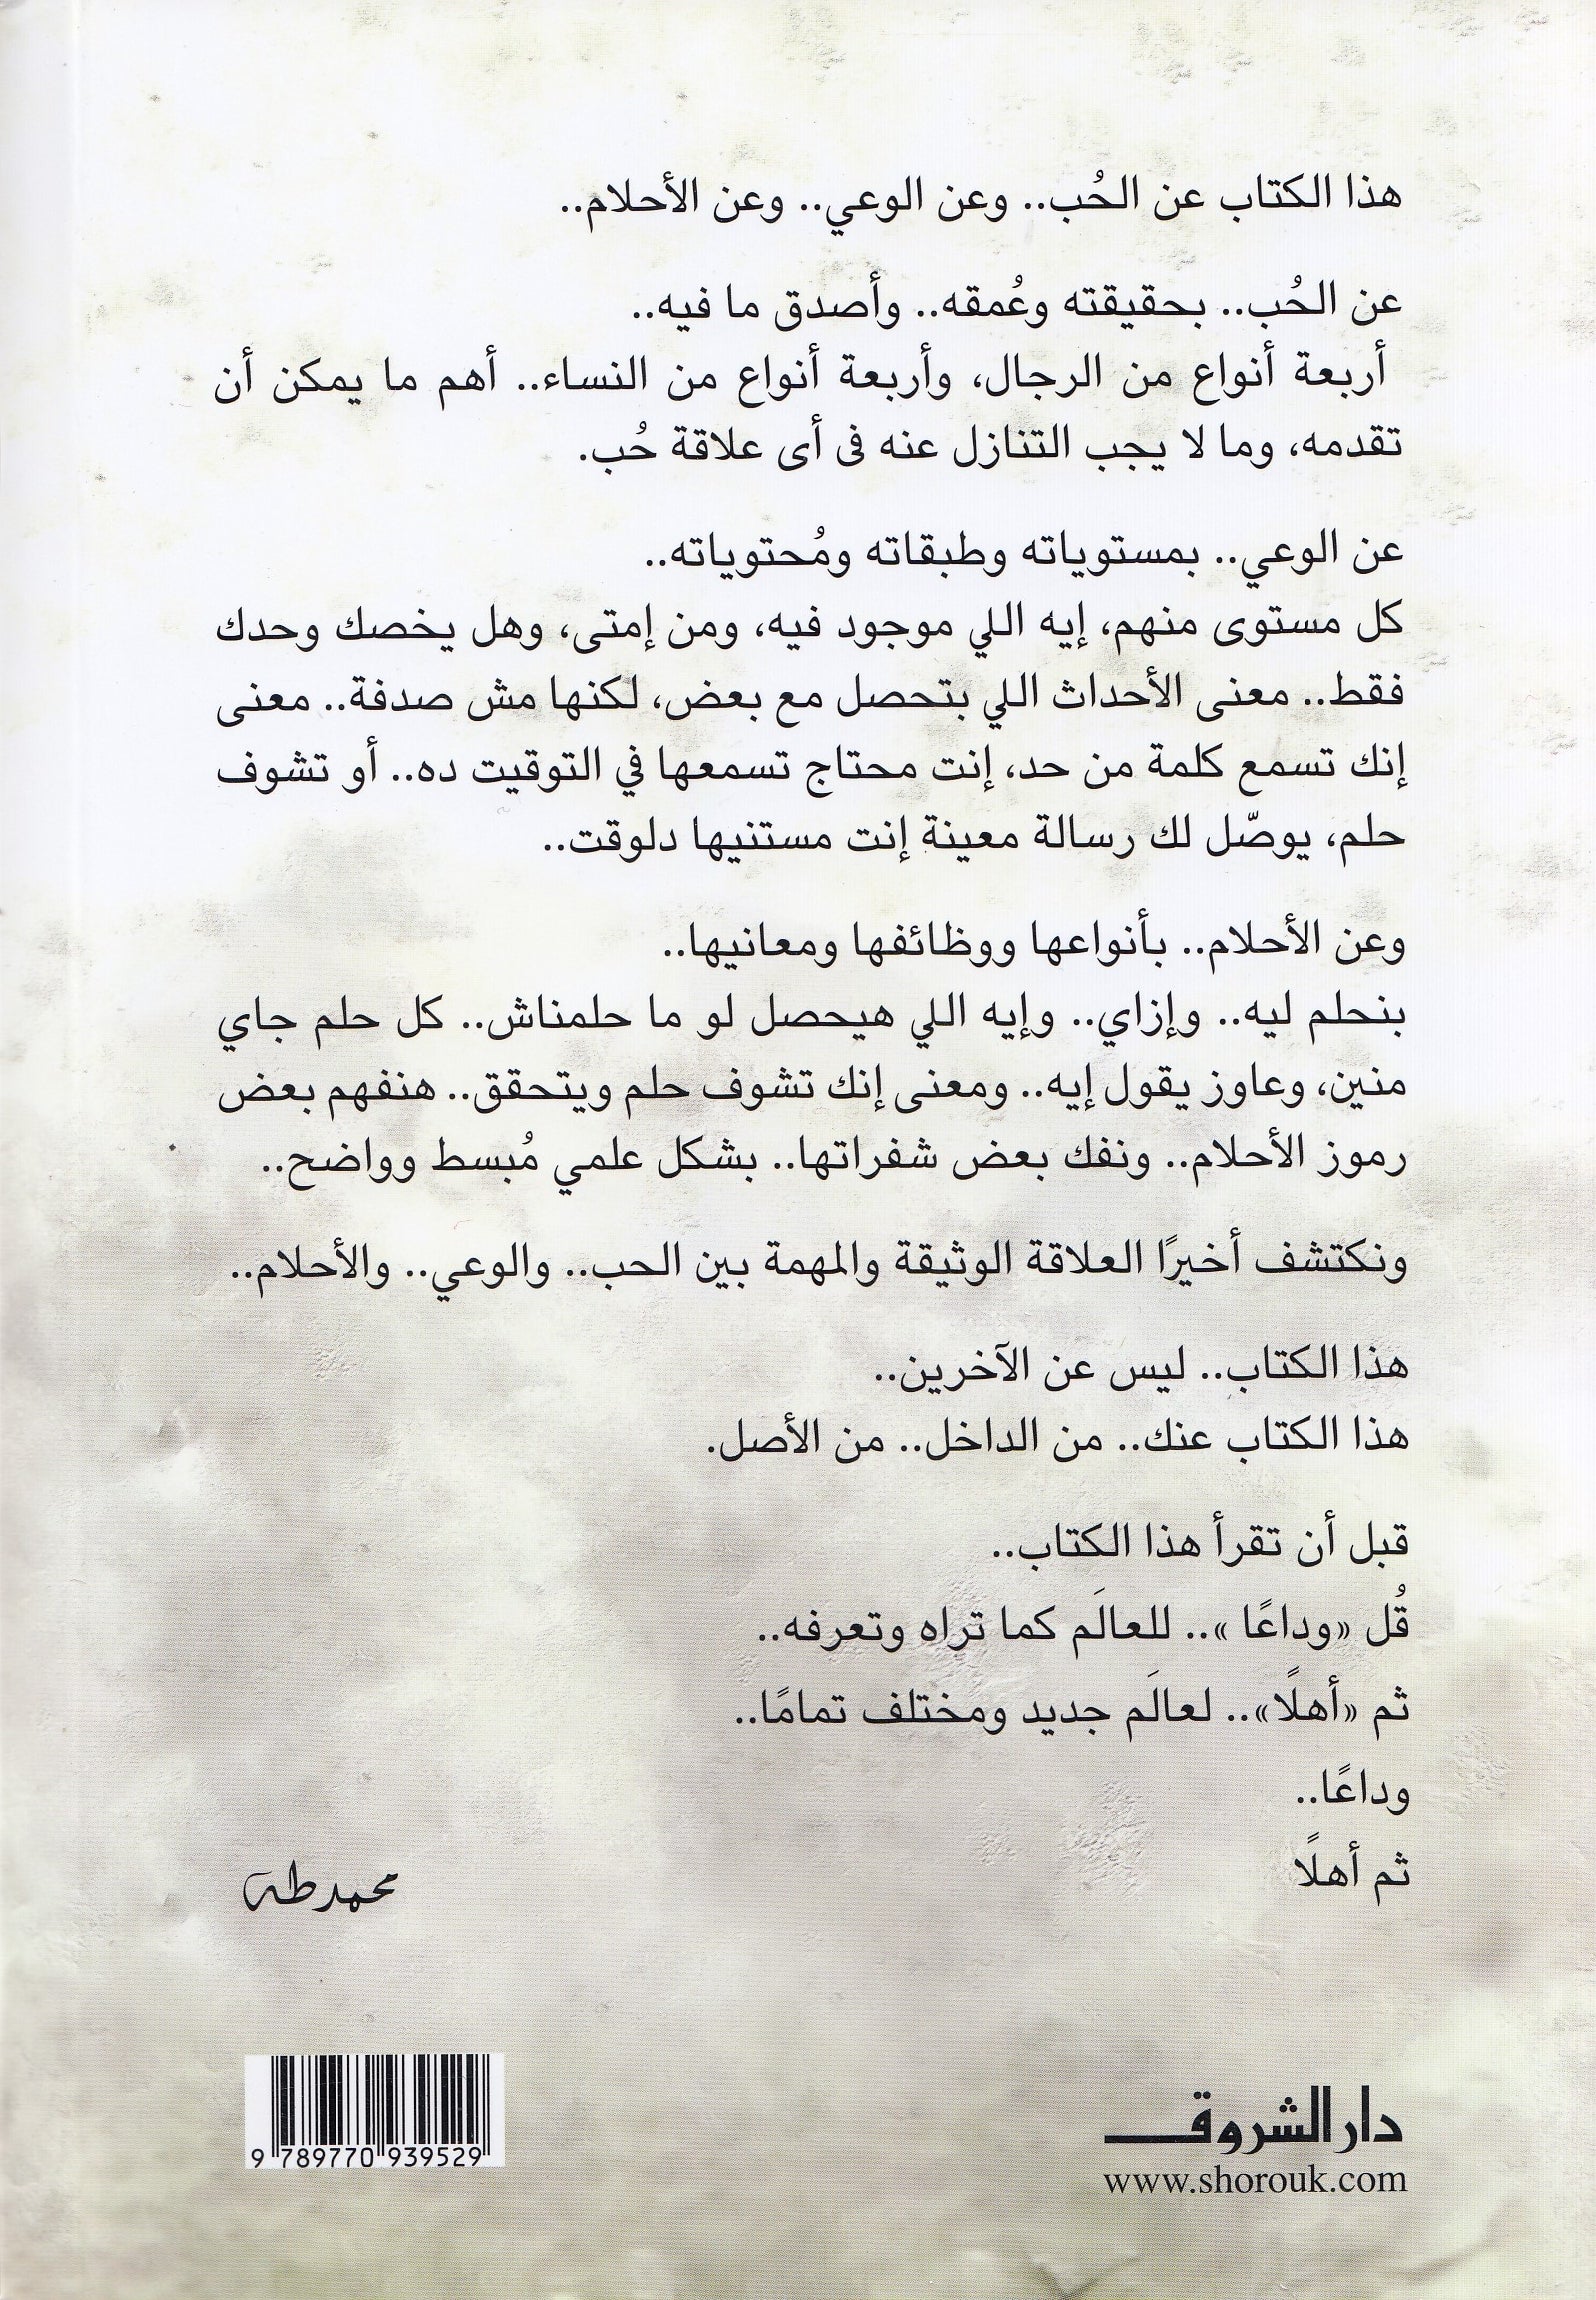 هذا الكتاب عن الحُب.. وعن الوعي.. وعن الأحلام..
عن الحُب.. بحقيقته وعُمقه.. وأصدق ما فيه..
أربعة أنواع من الرجال، وأربعة أنواع من النساء.. أهم ما يمكن أن
تقدمه، وما لا يجب التنازل عنه فى أى علاقة حُب.
عن الوعي.. بمستوياته وطبقاته ومُحتوياته..
كل مستوى منهم، إيه اللي موجود فيه، ومن إمتى، وهل يخصك وحدك
فقط.. معنى الأحداث اللي بتحصل مع بعض، لكنها مش صدفة.. معنى
إنك تسمع كلمة من حد، إنت محتاج تسمعها في التوقيت ده.. أو تشوف
حلم، يوصّل لك رسالة معينة إنت مستنيها دلوقت..
وعن الأحلام.. بأنواعها ووظائفها ومعانيها..
بنحلم ليه.. وإزاي.. وإيه اللي هيحصل لو ما حلمناش.. كل حلم جاي
منين، وعاوز يقول إيه.. ومعنى إنك تشوف حلم ويتحقق.. هنفهم بعض
رموز الأحلام.. ونفك بعض شفراتها.. بشكل علمي مُبسط وواضح..
ونكتشف أخيرًا العلاقة الوثيقة والمهمة بين الحب.. والوعي.. والأحلام..
هذا الكتاب.. ليس عن الآخرين..
هذا الكتاب عنك.. من الداخل.. من الأصل.
قبل أن تقرأ هذا الكتاب..
قُل «وداعًا ».. للعالَم كما تراه وتعرفه..
ثم «أهلًا».. لعالَم جديد ومختلف تمامًا..
وداعًا..
ثم أهلًا
محمد طه
دار الشروق
www.shorouk.com
9 789770 939529